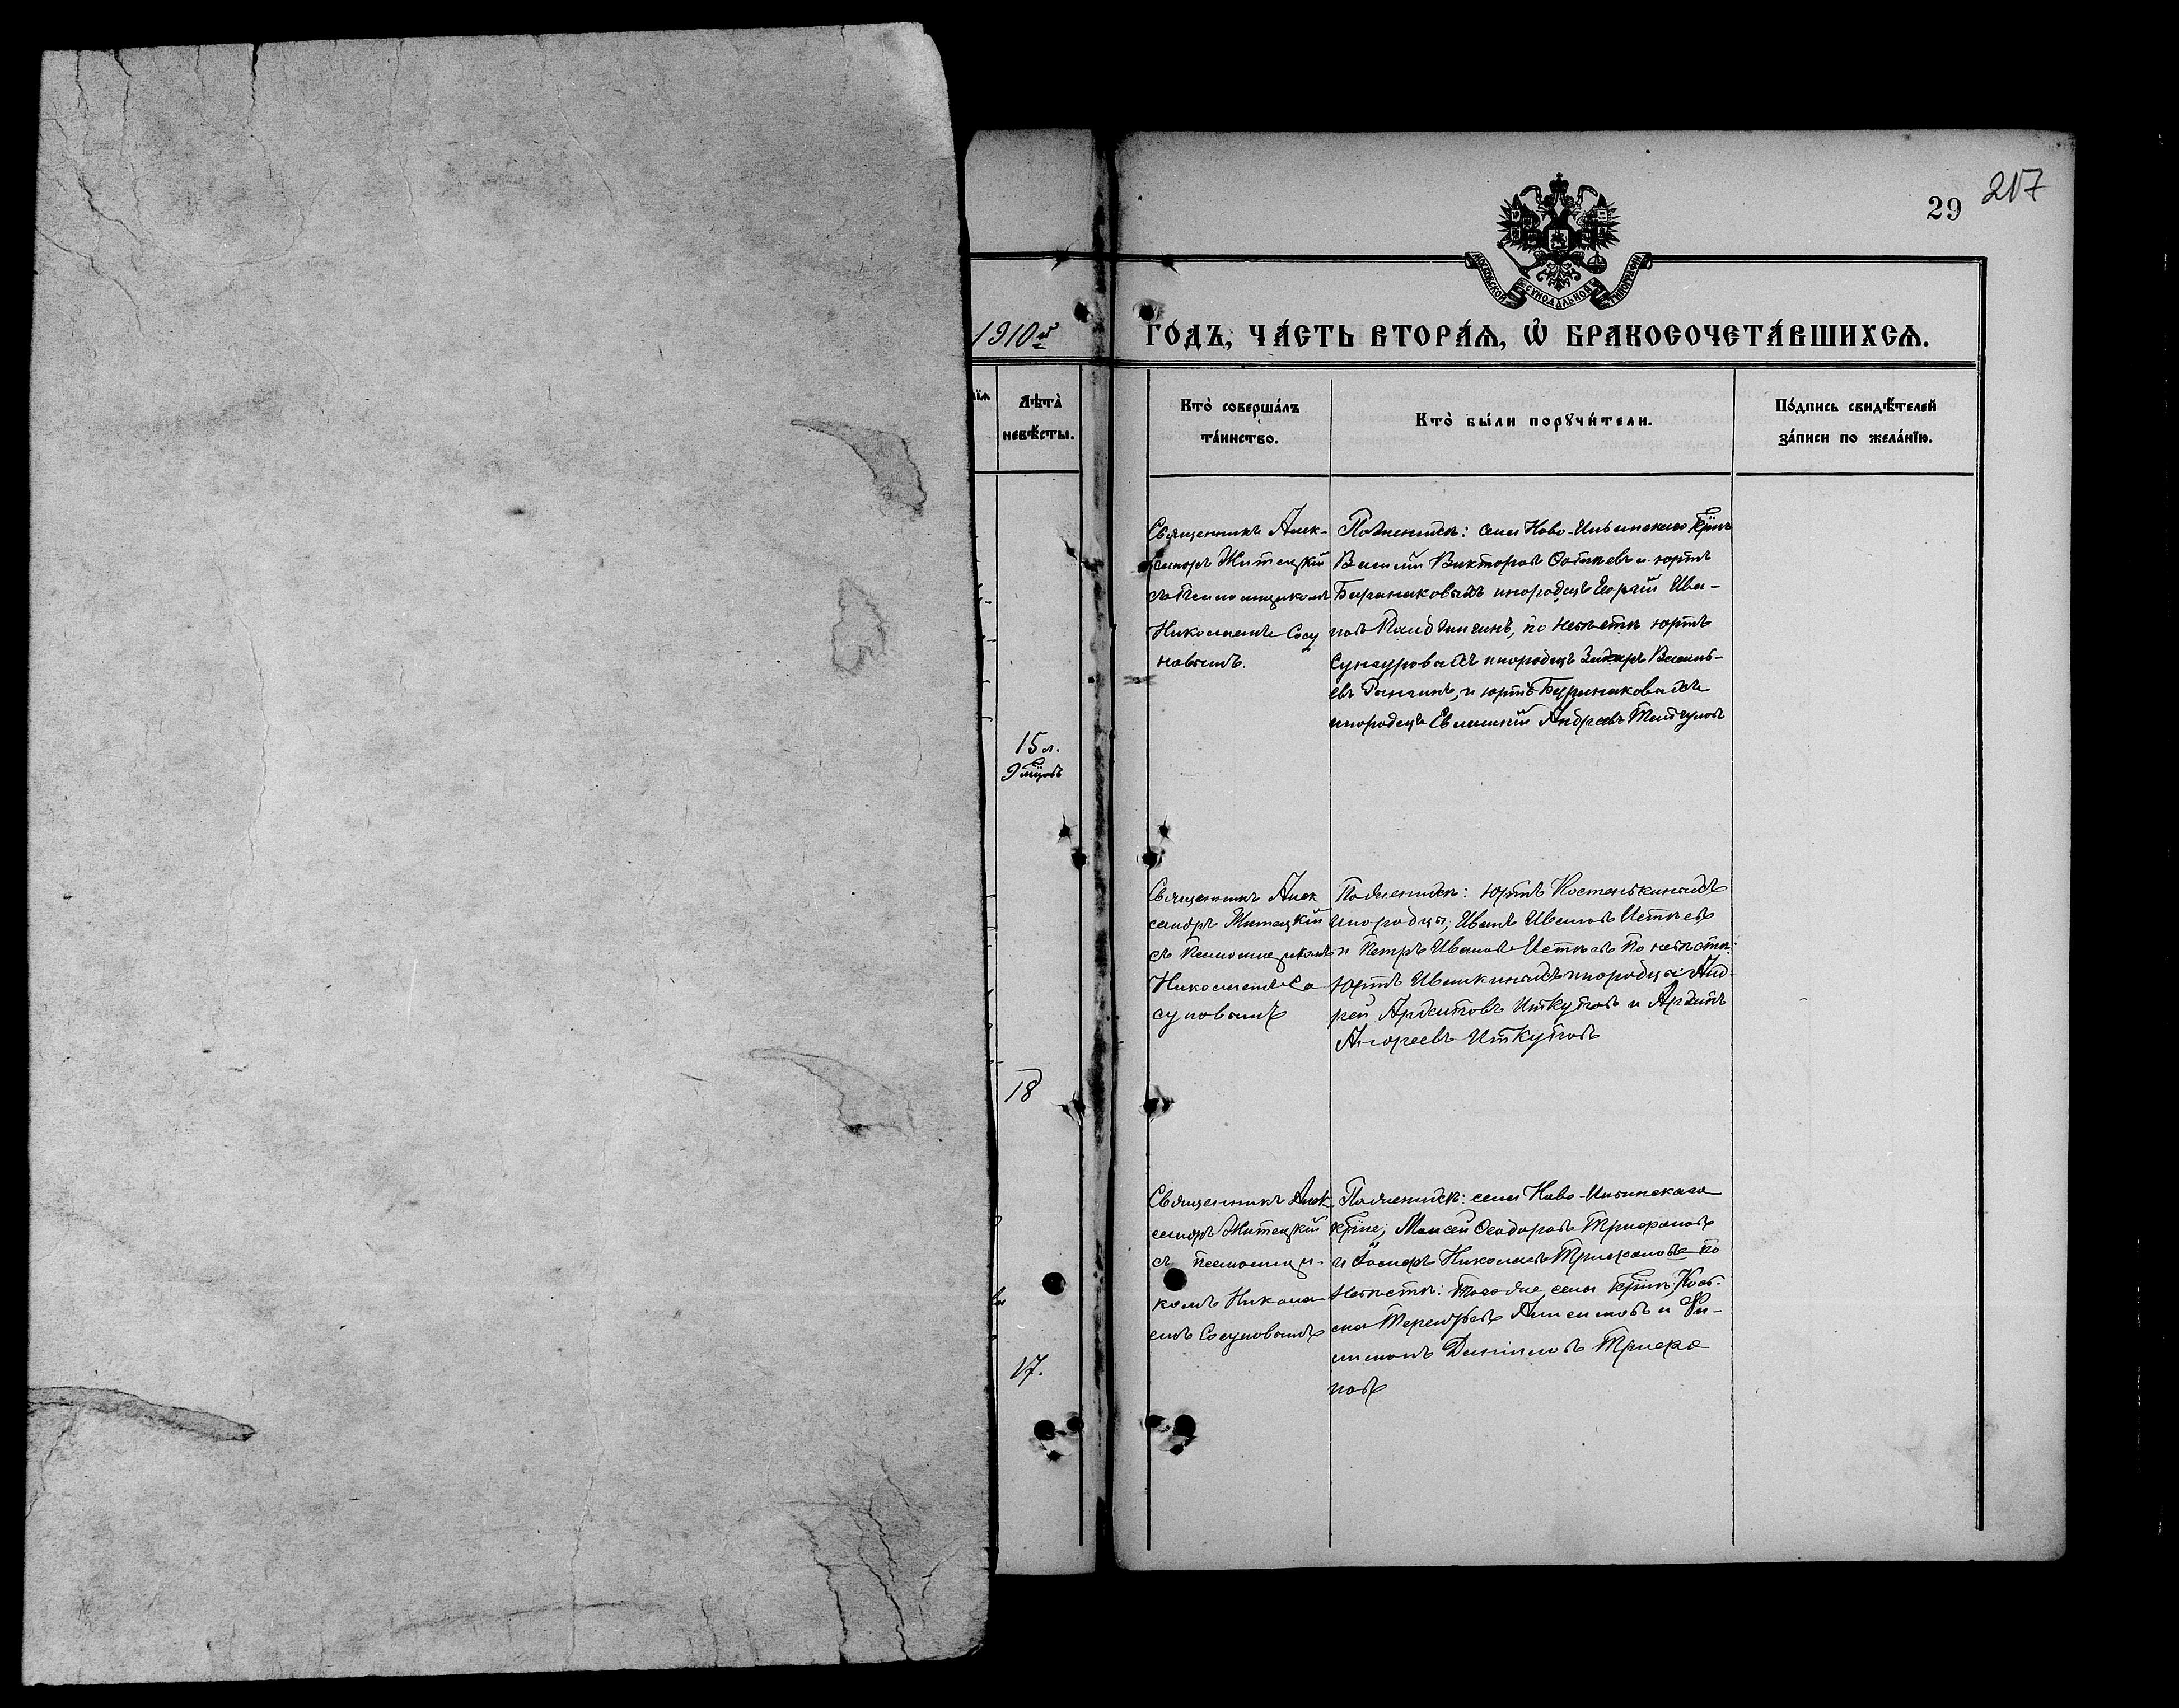 217
29
МОСКОВСКОЙ СѴНОДАЛЬНОЙ ТИПОГРАФІИ
1910й
ГО́ДЪ, ЧА́СТЬ ВТОРА́Ѧ, Ѽ БРАКОСОЧЕТА́ВШИХСѦ.
Лѣта̀ невѣ́сты.
Кто̀ соверша́лъ та́инство.
Кто̀ бы́ли порꙋчи́тели.
По́дпись свидѣ́телей за́писи по жела́нїю.
Священникъ Алек-
сандръ Житецкій
съ Псаломщикомъ
Николаемъ Сосу
новымъ.
По женихѣ: села Ново-Ильинскаго крїне
Василій Викторовъ и юртъ
инородецъ Георгій Ива-
новъ по невѣстѣ юртъ
инородецъ Захаръ Василь-
евъ и юртъ
инородецъ Андреевъ
15 л.
9 мѣцовъ
Священникъ Алек
сандръ Житецкій
съ Псаломщикомъ
Николаемъ Со
суновымъ
По женихѣ: юртъ Костенькиныхъ
инородцы; Иванъ Ивановъ
и Петръ Ивановъ по невѣстѣ:
юртъ Ивашкиныхъ инородцы: Анд
рей Иткуповъ и
Андреевъ Иткуповъ
18
Священникъ Алек
сандръ Житецкій
съ псаломщи-
комъ Никола
емъ Сосуновымъ
По женихѣ: села Ново-Ильинскаго
крїне; Моисей Ѳеодоровъ Трифоновъ
и Іосифъ Николаевъ Трифоновъ по
невѣстѣ: того же села крїне: Кось-
ма Терентьевъ и Фи-
липпъ Даниловъ Трифо
новъ
17.